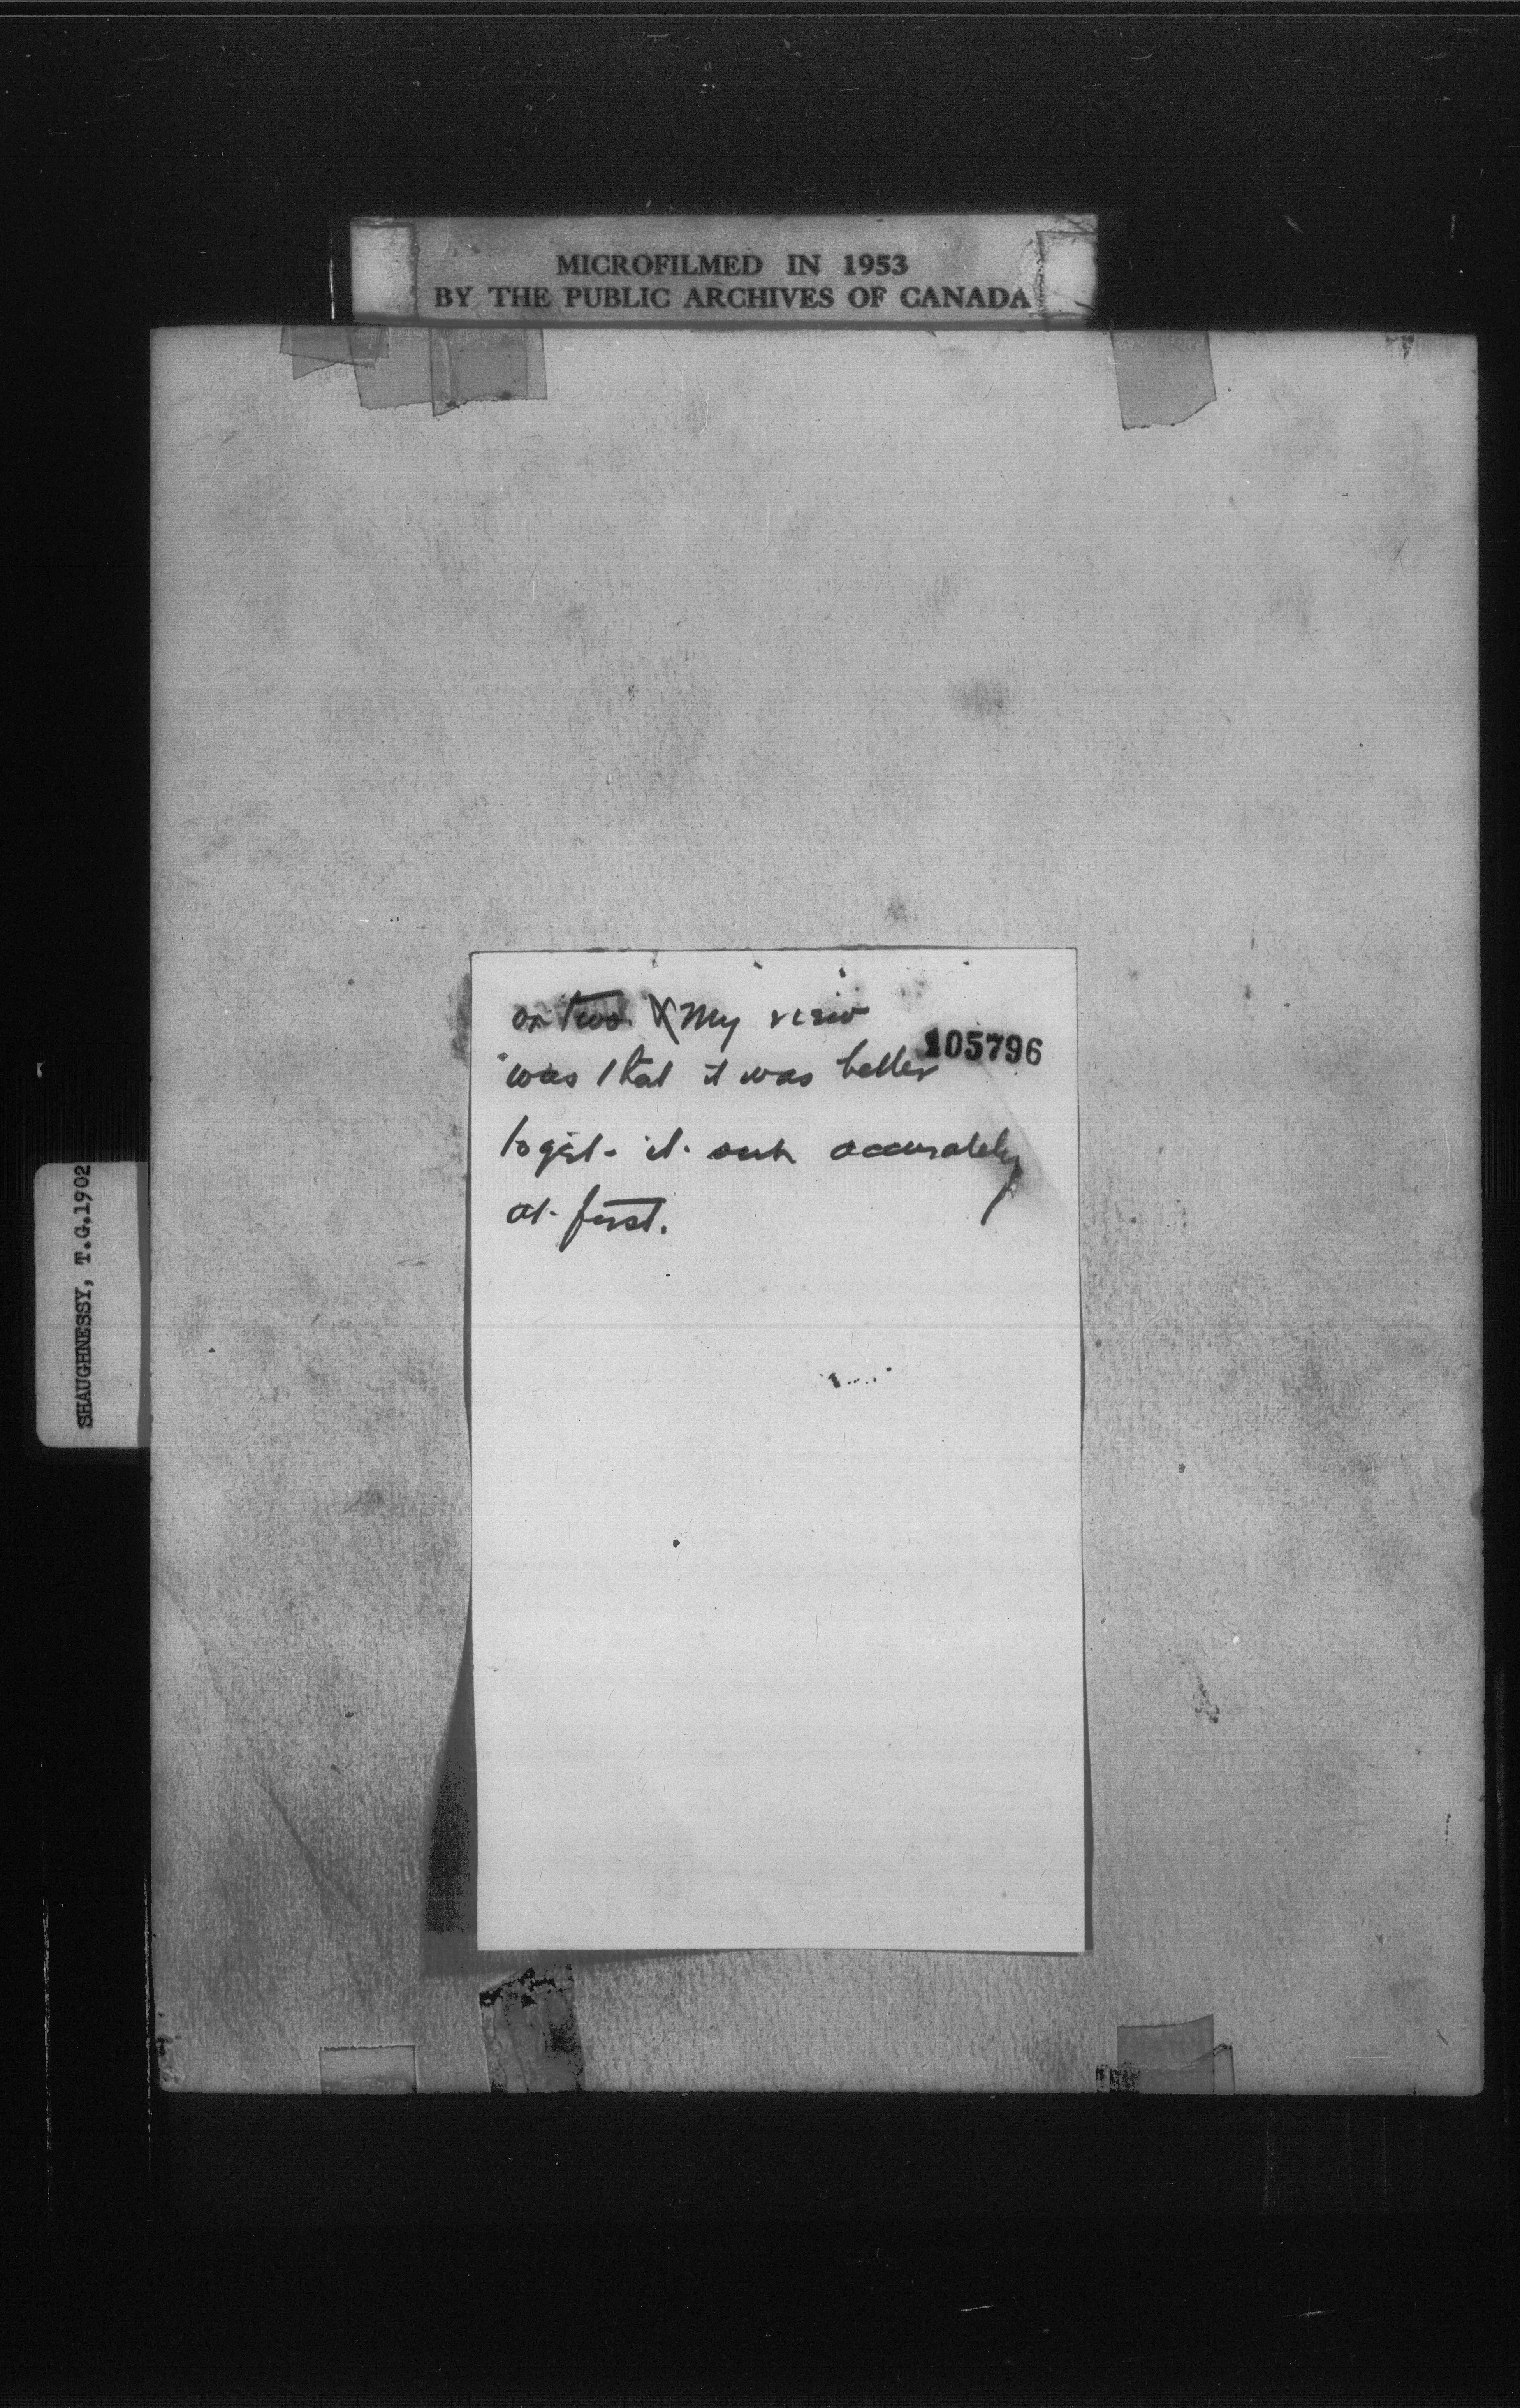 MICROFILMED IN 1953
BY THE PUBLIC ARCHIVES OF CANADA
or two. X My view
105796
was that it was better
to get it out accurately
at first.
SHAUGHNESSY, T.G.1902